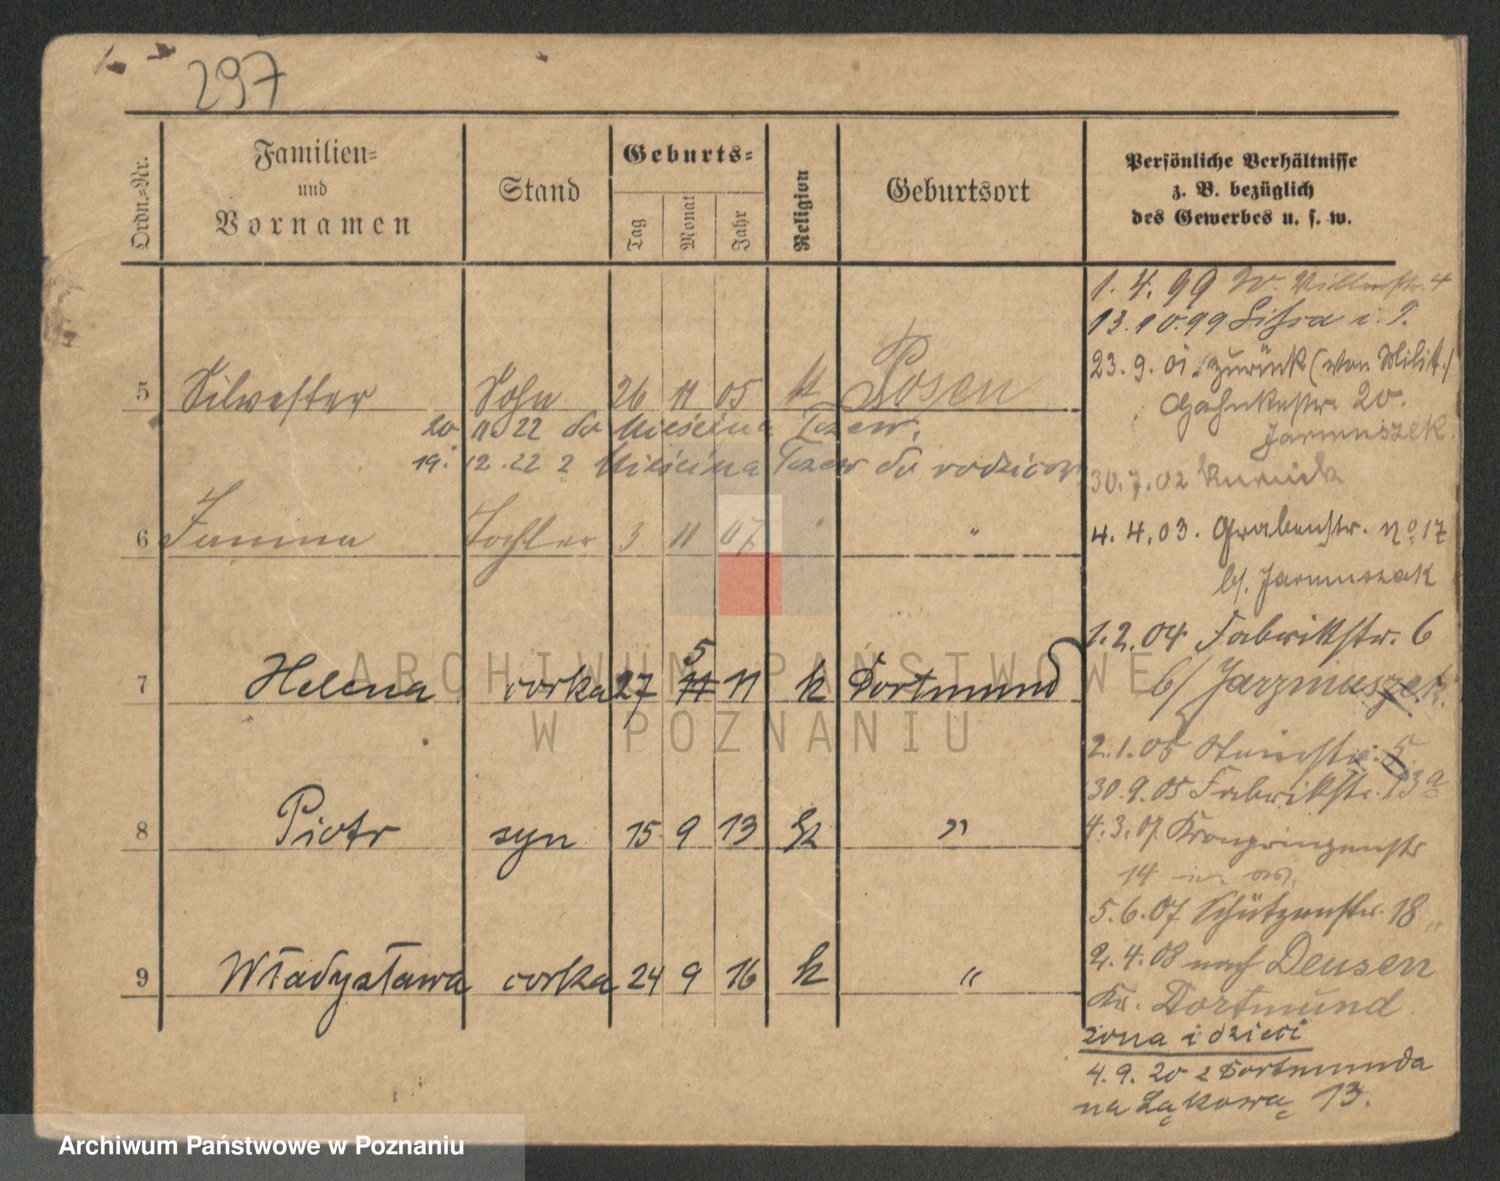 297
Ordn.=Nr.
Familien=
und
Vornamen
Stand
Geburts=
Tag
Monat
Jahr
Religion
Geburtsort
Persönliche Verhältnisse
z. B. bezüglich
des Gewerbes u. s. w.
5 Silvester Sohn 26 11 05 k Posen
20 11 22 do Mieścina Tczew.
19. 12. 22 z Mieścina Tczew do rodziców
6 Janina Tochter 3 11 07 " "
7 Helena córka 27 5 11 k Dortmund
8 Piotr syn 15 9 13 k "
9 Władysława córka 24 9 16 k "
1. 4. 99 W. 4
13.10.99 i. P.
23. 9. 01. zurück (von Milit.)
20.
Jarmuszek
30.7.02 Kurnik
4. 4. 03. Grabenstr. No 17
b/. Jarmuszak
1. 2. 04 Fabrikstr. 6
b/ Jarzmuszek
2.1.05 5
30.9.05 Fabrikstr. 13a
4.3.07 Kronprinzenstr
14
5.6.07 Schützenstr. 18
2.4.08 nach Deusen
Kr. Dortmund
żona i dzieci
4. 9. 20 z Dortmunda
na Łąkową 13.
ARCHIWUM PAŃSTWOWE
W POZNANIU
Archiwum Państwowe w Poznaniu